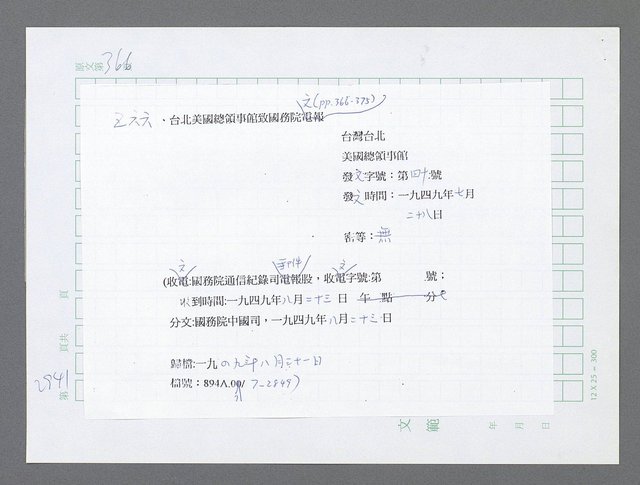 原文第366
文(pp.366-373)
五六六、台北美國總領事館致國務院電報
台灣台北
美國總領事館
發文字號：第四十號
發文時間：一九四九年七月
二十八日
密等：無
文 郵件 文
(收電:國務院通信紀錄司電報股，收電字號:第 號；
收到時間:一九四九年八月二十三日 午 點 分
分文:國務院中國司，一九四九年八月二十三日
歸檔:一九四九年八月三十一日
檔號：894A.00/7-2849)
第2941頁
共 頁
文範
年 月 日
12 X 25 = 300